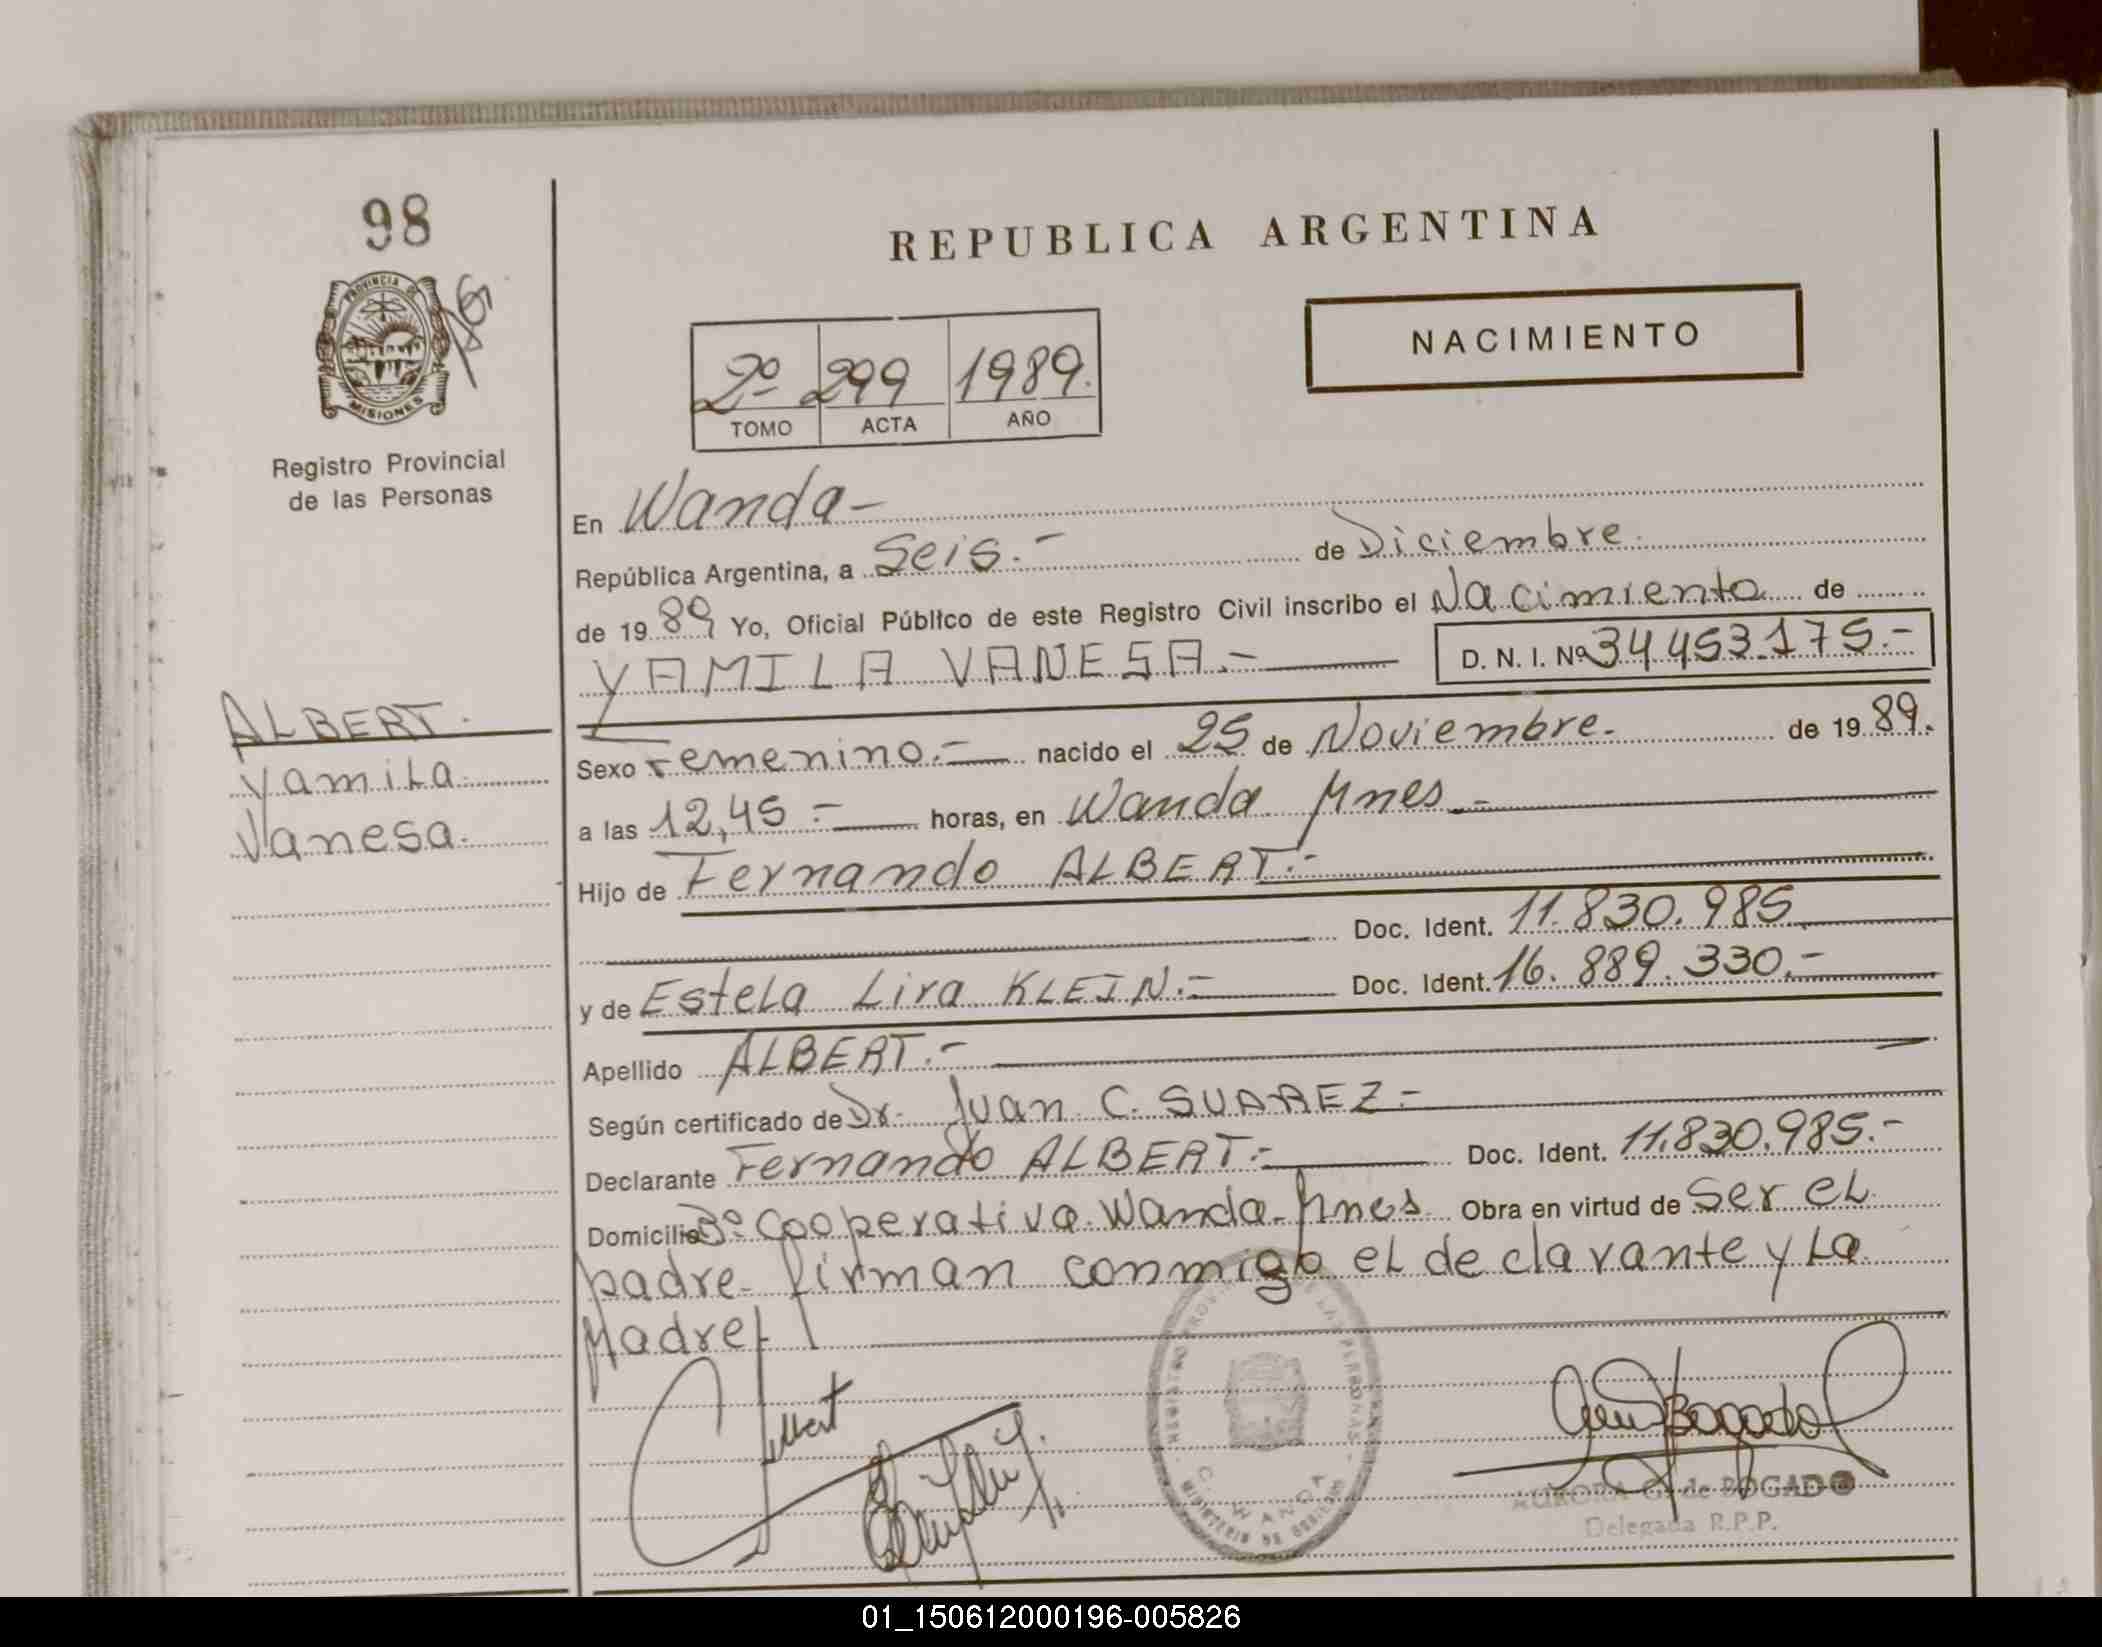 98
PROVINCIA DE
MISIONES
Registro Provincial
de las Personas
ALBERT.
Yamila
Vanesa.
REPUBLICA ARGENTINA
NACIMIENTO
2º 299 1989.
TOMO ACTA AÑO
En Wanda-
República Argentina, a Seis.- de Diciembre.
de 1989 Yo, Oficial Público de este Registro Civil inscribo el Nacimiento de
YAMILA VANESA.- D. N. I. Nº 34.453.175.-
Sexo Femenino.- nacido el 25 de Noviembre. de 1989.
a las 12,45 - horas, en Wanda Mnes.-
Hijo de Fernando ALBERT.-
Doc. Ident. 11.830.985
y de Estela Lira KLEIN.- Doc. Ident. 16.889.330.-
Apellido ALBERT.-
Según certificado de Dr. Juan C. SUAREZ-
Declarante Fernando ALBERT- Doc. Ident. 11.830.985.-
Domicilio Bº Cooperativa Wanda-Mnes Obra en virtud de Ser el
padre- firman conmigo el declarante y la
Madre
Albert
AURORA G. de BOGADO
Delegada R.P.P.
WANDA
01_150612000196-005826